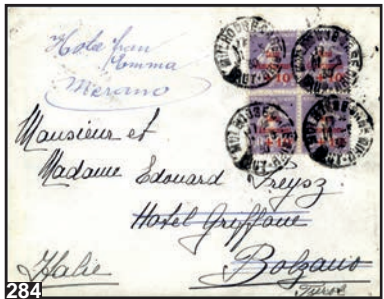 Hotel frau
Emma
Merano
+10
Monsieur et
Madame Edouard Freysz
Hotel Gryffone
Bolzano
Italie
Tirol
284